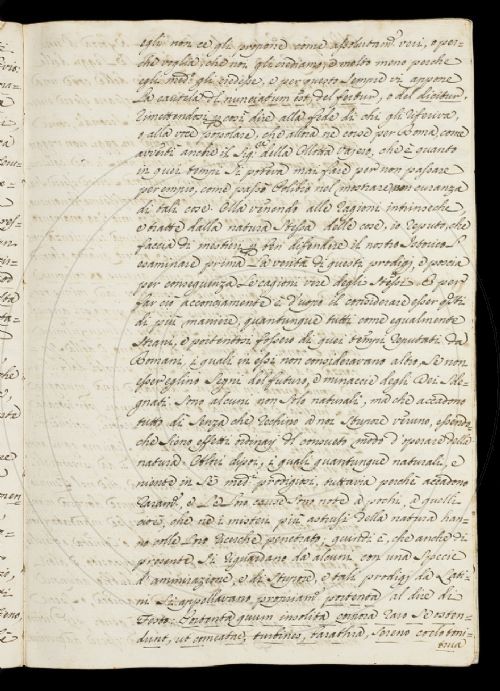 egli non ce gli propone come assolutam.te veri, o per=
che voglia, che noi gli crediamo, e molto meno perche
egli med.o gli credesse, e per questo sempre vi appone
la cautela di nunciatum est, del fertur, o del dicitur,
rimettendosi così dire alla fede di chi gli riferiva,
o alla voce popolare, che allora ne corse per Roma, come
avvertì anche il Sig.r della Motta Vajero, che è quanto
in quei tempi si poteva mai fare per non passare
per empio, come passò Polibio nel mostrare non curanza
di tali cose. Ma venendo alle ragioni intrinseche
e tratte dalla natura stessa delle cose, io reputo, che
faccia di mestieri per ben difendere il nostro Istorico l'
esaminare prima la verità di questi prodigj, e poscia
per conseguenza le cagioni vere degli stessi. E per
far ciò acconciamente è d'uopo il considerare esser questi
di più maniere, quantunque tutti come egualmente
strani, e portentosi fossero di quei tempi reputati da
Romani, i quali in essi non consideravano altro, se non
esser eglino segni del futuro, e minacce degli Dei sde=
gnati. Sono alcuni non solo naturali, ma che accadono
tutto dì senza che rechino a noi stupore veruno, essendo
che sieno effetti ordinarj del consueto modo d'operare della
natura. Altri dipoi, i quali quantunque naturali, e
niente in se med.i prodigiosi, tuttavia perche accadono
raram.te, e le loro cause sono note a pochi, a quelli
cioè, che ne i misterj più astrusi della natura han=
no colle loro ricerche penetrato; quindi è, che anche di
presente si riguardano da alcuni con una specie
d'ammirazione, e di stupore, e tali prodigj da Lati=
ni si appellavano propriam.te portenta al dire di
Festo: Portenta quum insolita congra raro se osten=
dunt, ut cometae, turbines, sereno coelo toni=
trua